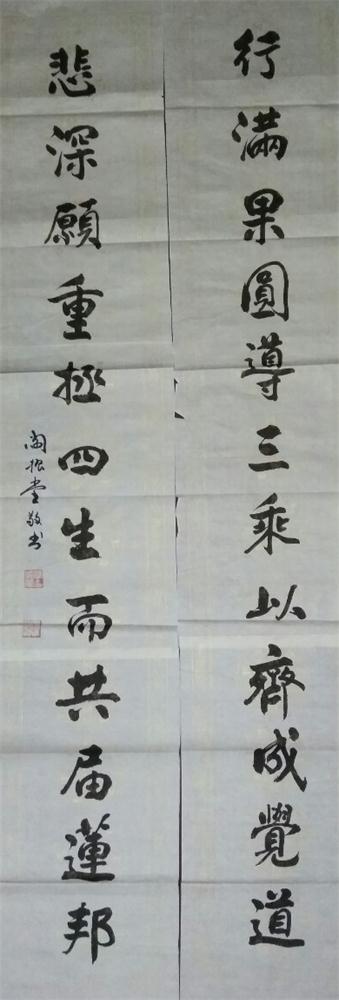 行滿果圓導三乘以齊成覺道
悲深願重拯四生而共届蓮邦
敬书